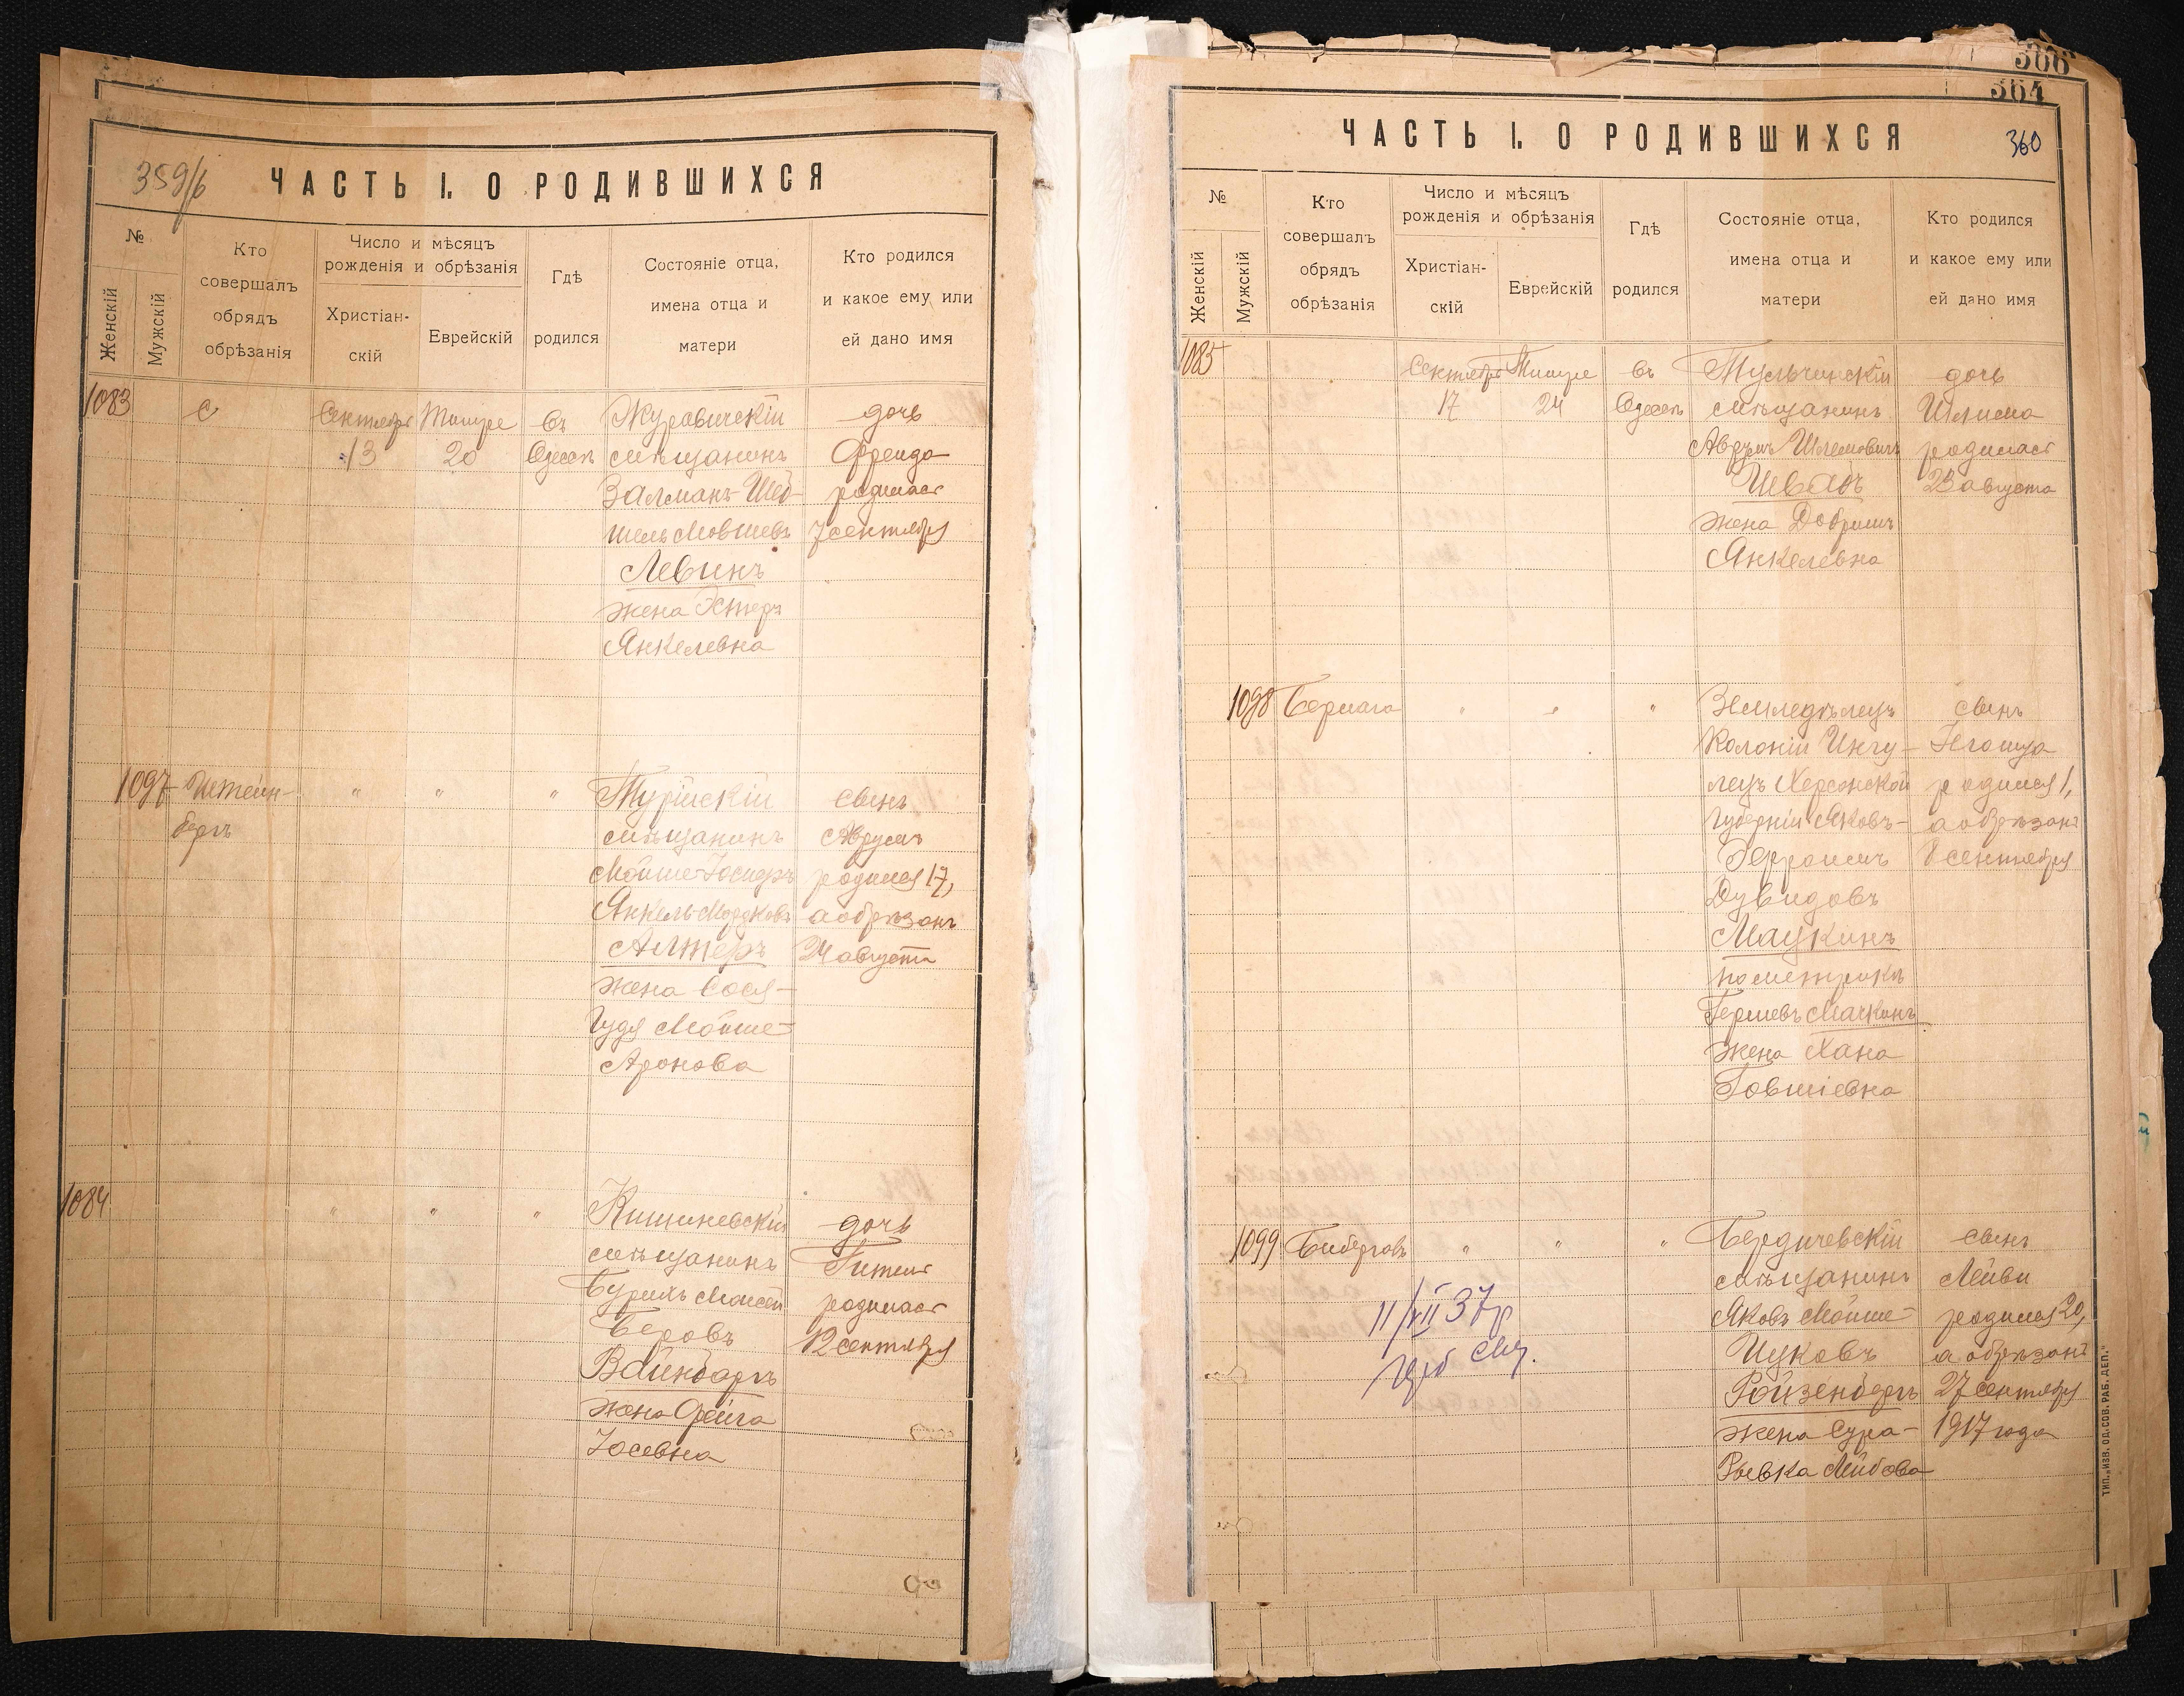 359/б
ЧАСТЬ I. О РОДИВШИХСЯ
№
Женскій
Мужскій
Кто
совершалъ
обрядъ
обрѣзанія
Число и мѣсяцъ
рожденія и обрѣзанія
Христіан-
скій
Еврейскій
Гдѣ
родился
Состояніе отца,
имена отца и
матери
Кто родился
и какое ему или
ей дано имя
1083
Сентября
13
Тишре
20
въ
Одессѣ
Журавичскій
мѣщанинъ
Залманъ-
Мовшевъ
Левинъ
жена Эстеръ
Янкелевна
дочь
Фрейда
родилась
7 сентября
1097
Штейн-
бергъ
" " "
Турійскій
мѣщанинъ
Мойше-Іосифъ
Янкель-Мордковъ
Алтеръ
жена Сося-
Гудя Мойше-
Аронова
сынъ
Аврумъ
родился 17,
а обрѣзанъ
24 августа
1084
" " "
Кишиневскій
мѣщанинъ
Бурихъ Моисей
Беровъ
Вайнбаргъ
жена Фейга
Іосевна
дочь
Гитля
родилась
12 сентября
306
364
360
ЧАСТЬ I. О РОДИВШИХСЯ
№
Женскій
Мужскій
Кто
совершалъ
обрядъ
обрѣзанія
Число и мѣсяцъ
рожденія и обрѣзанія
Христіан-
скій
Еврейскій
Гдѣ
родился
Состояніе отца,
имена отца и
матери
Кто родился
и какое ему или
ей дано имя
1085
Сентября
17
Тишре
24
въ
Одессѣ
Тульчинскій
мѣщанинъ
Авдумъ Шлемовичъ
Швабъ
жена Добришъ
Янкелевна
дочь
Шлима
родилась
23 августа
1098
Бермага
" " "
Земледѣлецъ
Колоніи Ингу-
лецъ Херсонской
Губерніи Яковъ-
Эфроимъ
Дувидовъ
Мацкинъ
по метрикѣ
Гершевъ Мацкинъ
жена Хана
Говшіевна
сынъ
родился 1,
а обрѣзанъ
8 сентября
1099
Бибергалъ
" " "
Бердичевскій
мѣщанинъ
Яковъ Мойше-
Ицковъ
Ройзенбергъ
жена Сура-
Рывка Лейбова
сынъ
Лейви
родился 20,
а обрѣзанъ
27 сентября
1917 года
11/VII 37 г
ТИП. „ИЗВ. ОД. СОВ. РАБ. ДЕП."